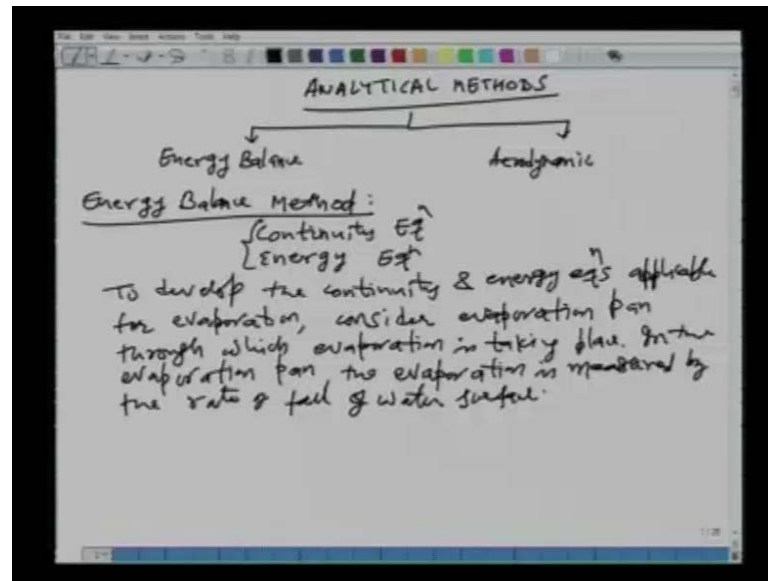 File Edit View Insert Actions Tools Help
ANALYTICAL METHODS
Energy Balance Aerodynamic
Energy Balance Method:
Continuity Eqn
Energy Eqn
To develop the continuity & energy eqns applicable
for evaporation, consider evaporation pan
through which evaporation is taking place. In the
evaporation pan the evaporation is measured by
the rate of fall of water surface.